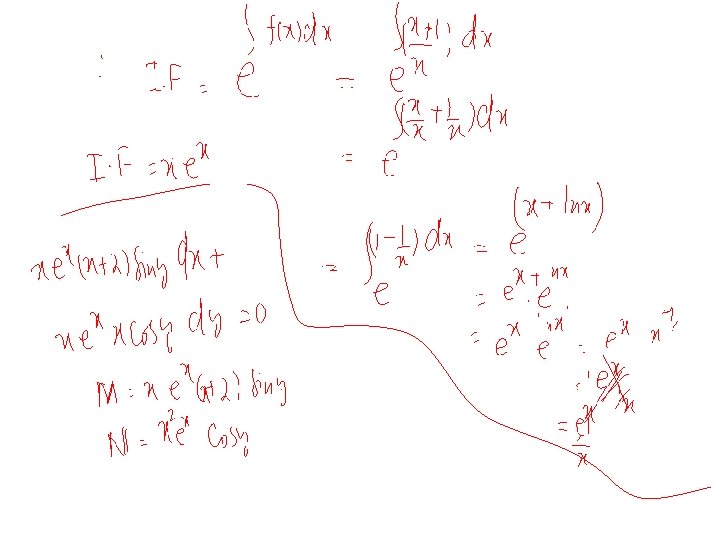 ∴ I.F = e^{∫f(x)dx} = e^{∫(x+1)/x dx}
= e^{∫(x/x + 1/x)dx}
I.F = xe^x
= e^{∫(1 - 1/x)dx} = e^{(x + lnx)}
= e^{x + lnx}
= e^x · e^{lnx}
= e^x
xe^x(x+2) siny dx +
xe^x x cosy dy = 0
M = x e^x (x+2) siny
N = x²e^x cosy
= e^x/x